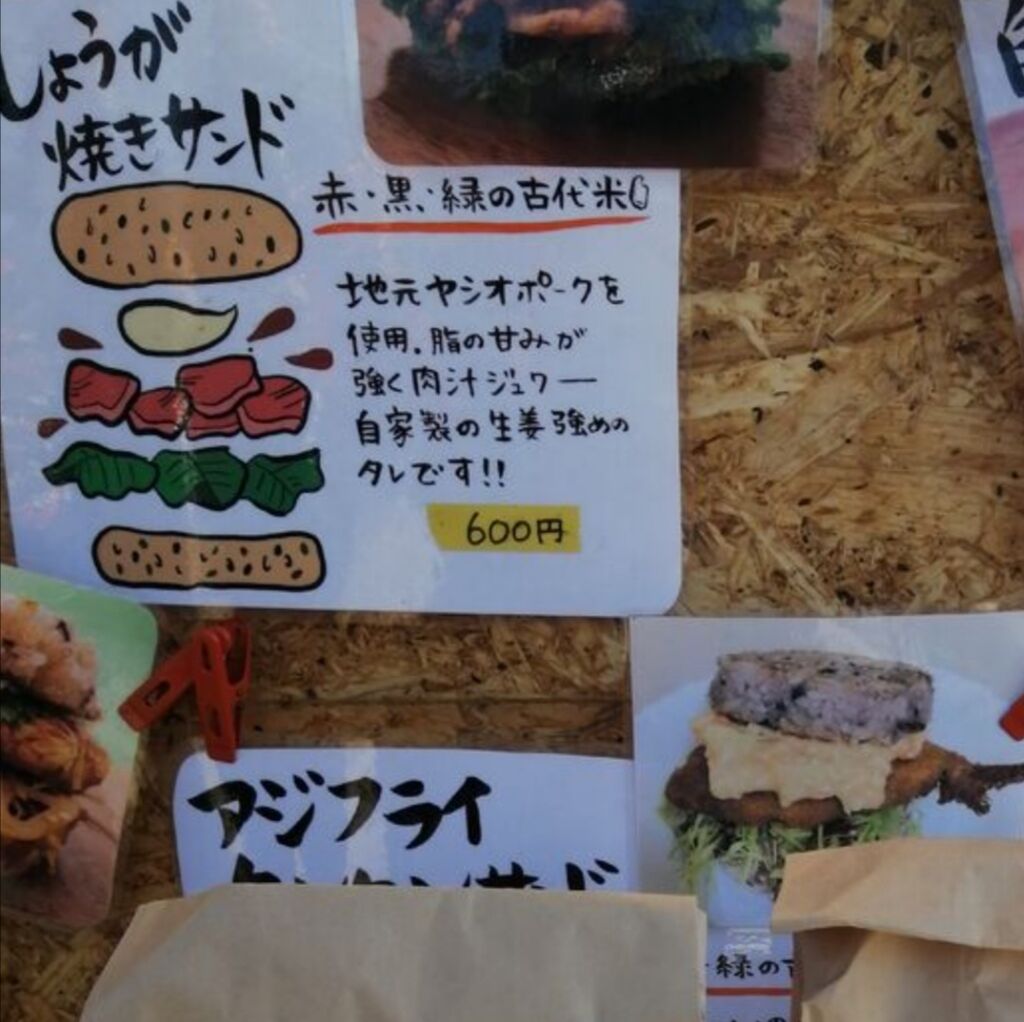 しょうが
焼きサンド
赤・黒・緑の古代米
地元ヤシオポークを
使用。脂の甘みが
強く肉汁ジュワー
自家製の生姜強めの
タレです!!
600円
アジフライ
緑の